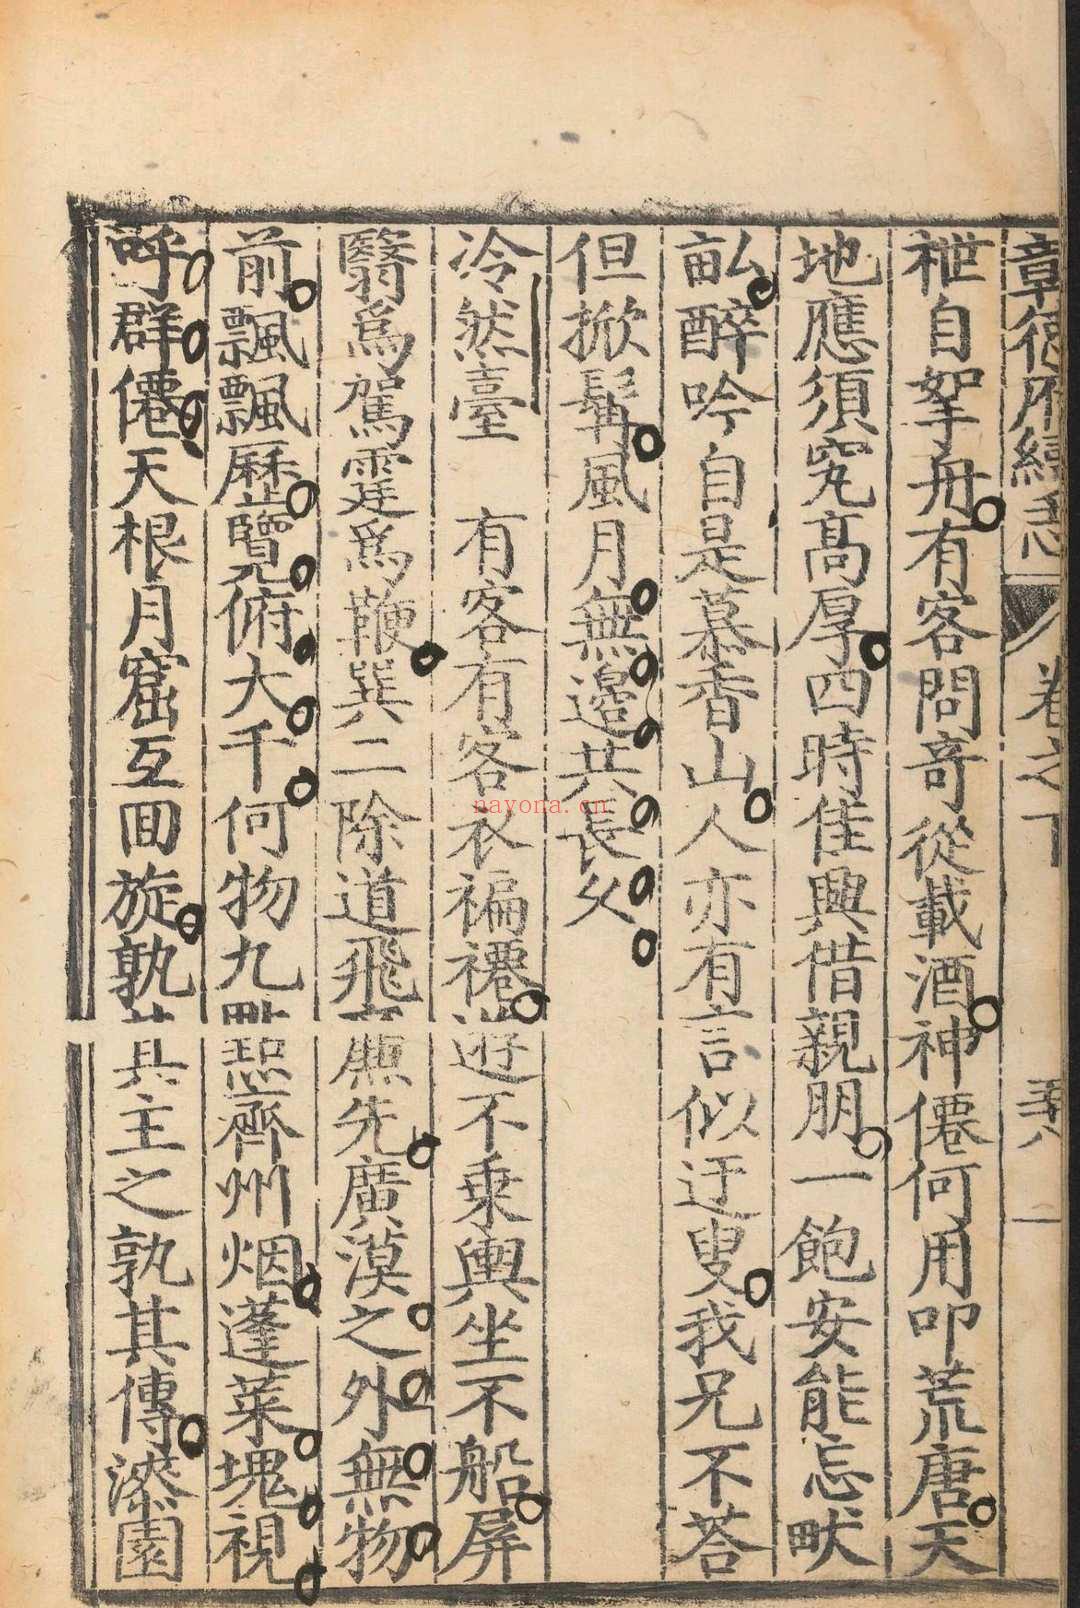 章德府續志 卷之下
襍自挐舟有客問奇從載酒神僊何用叩荒唐天
地應須究高厚四時佳興借親朋一飽安能忘畎
畝醉吟自是慕香山人亦有言似迂叟我兄不荅
但掀髯風月無邊共長久
泠然臺 有客有客衣褊褼遊不乗輿坐不船屏
翳爲駕霆爲鞭巽二除道飛廉先廣漠之外無物
前飄飄歷覽俯大千何物九點齊州烟蓬萊塊視
呼群僊天根月窟互囬旋孰其主之孰其傳漆園
nayona.cn